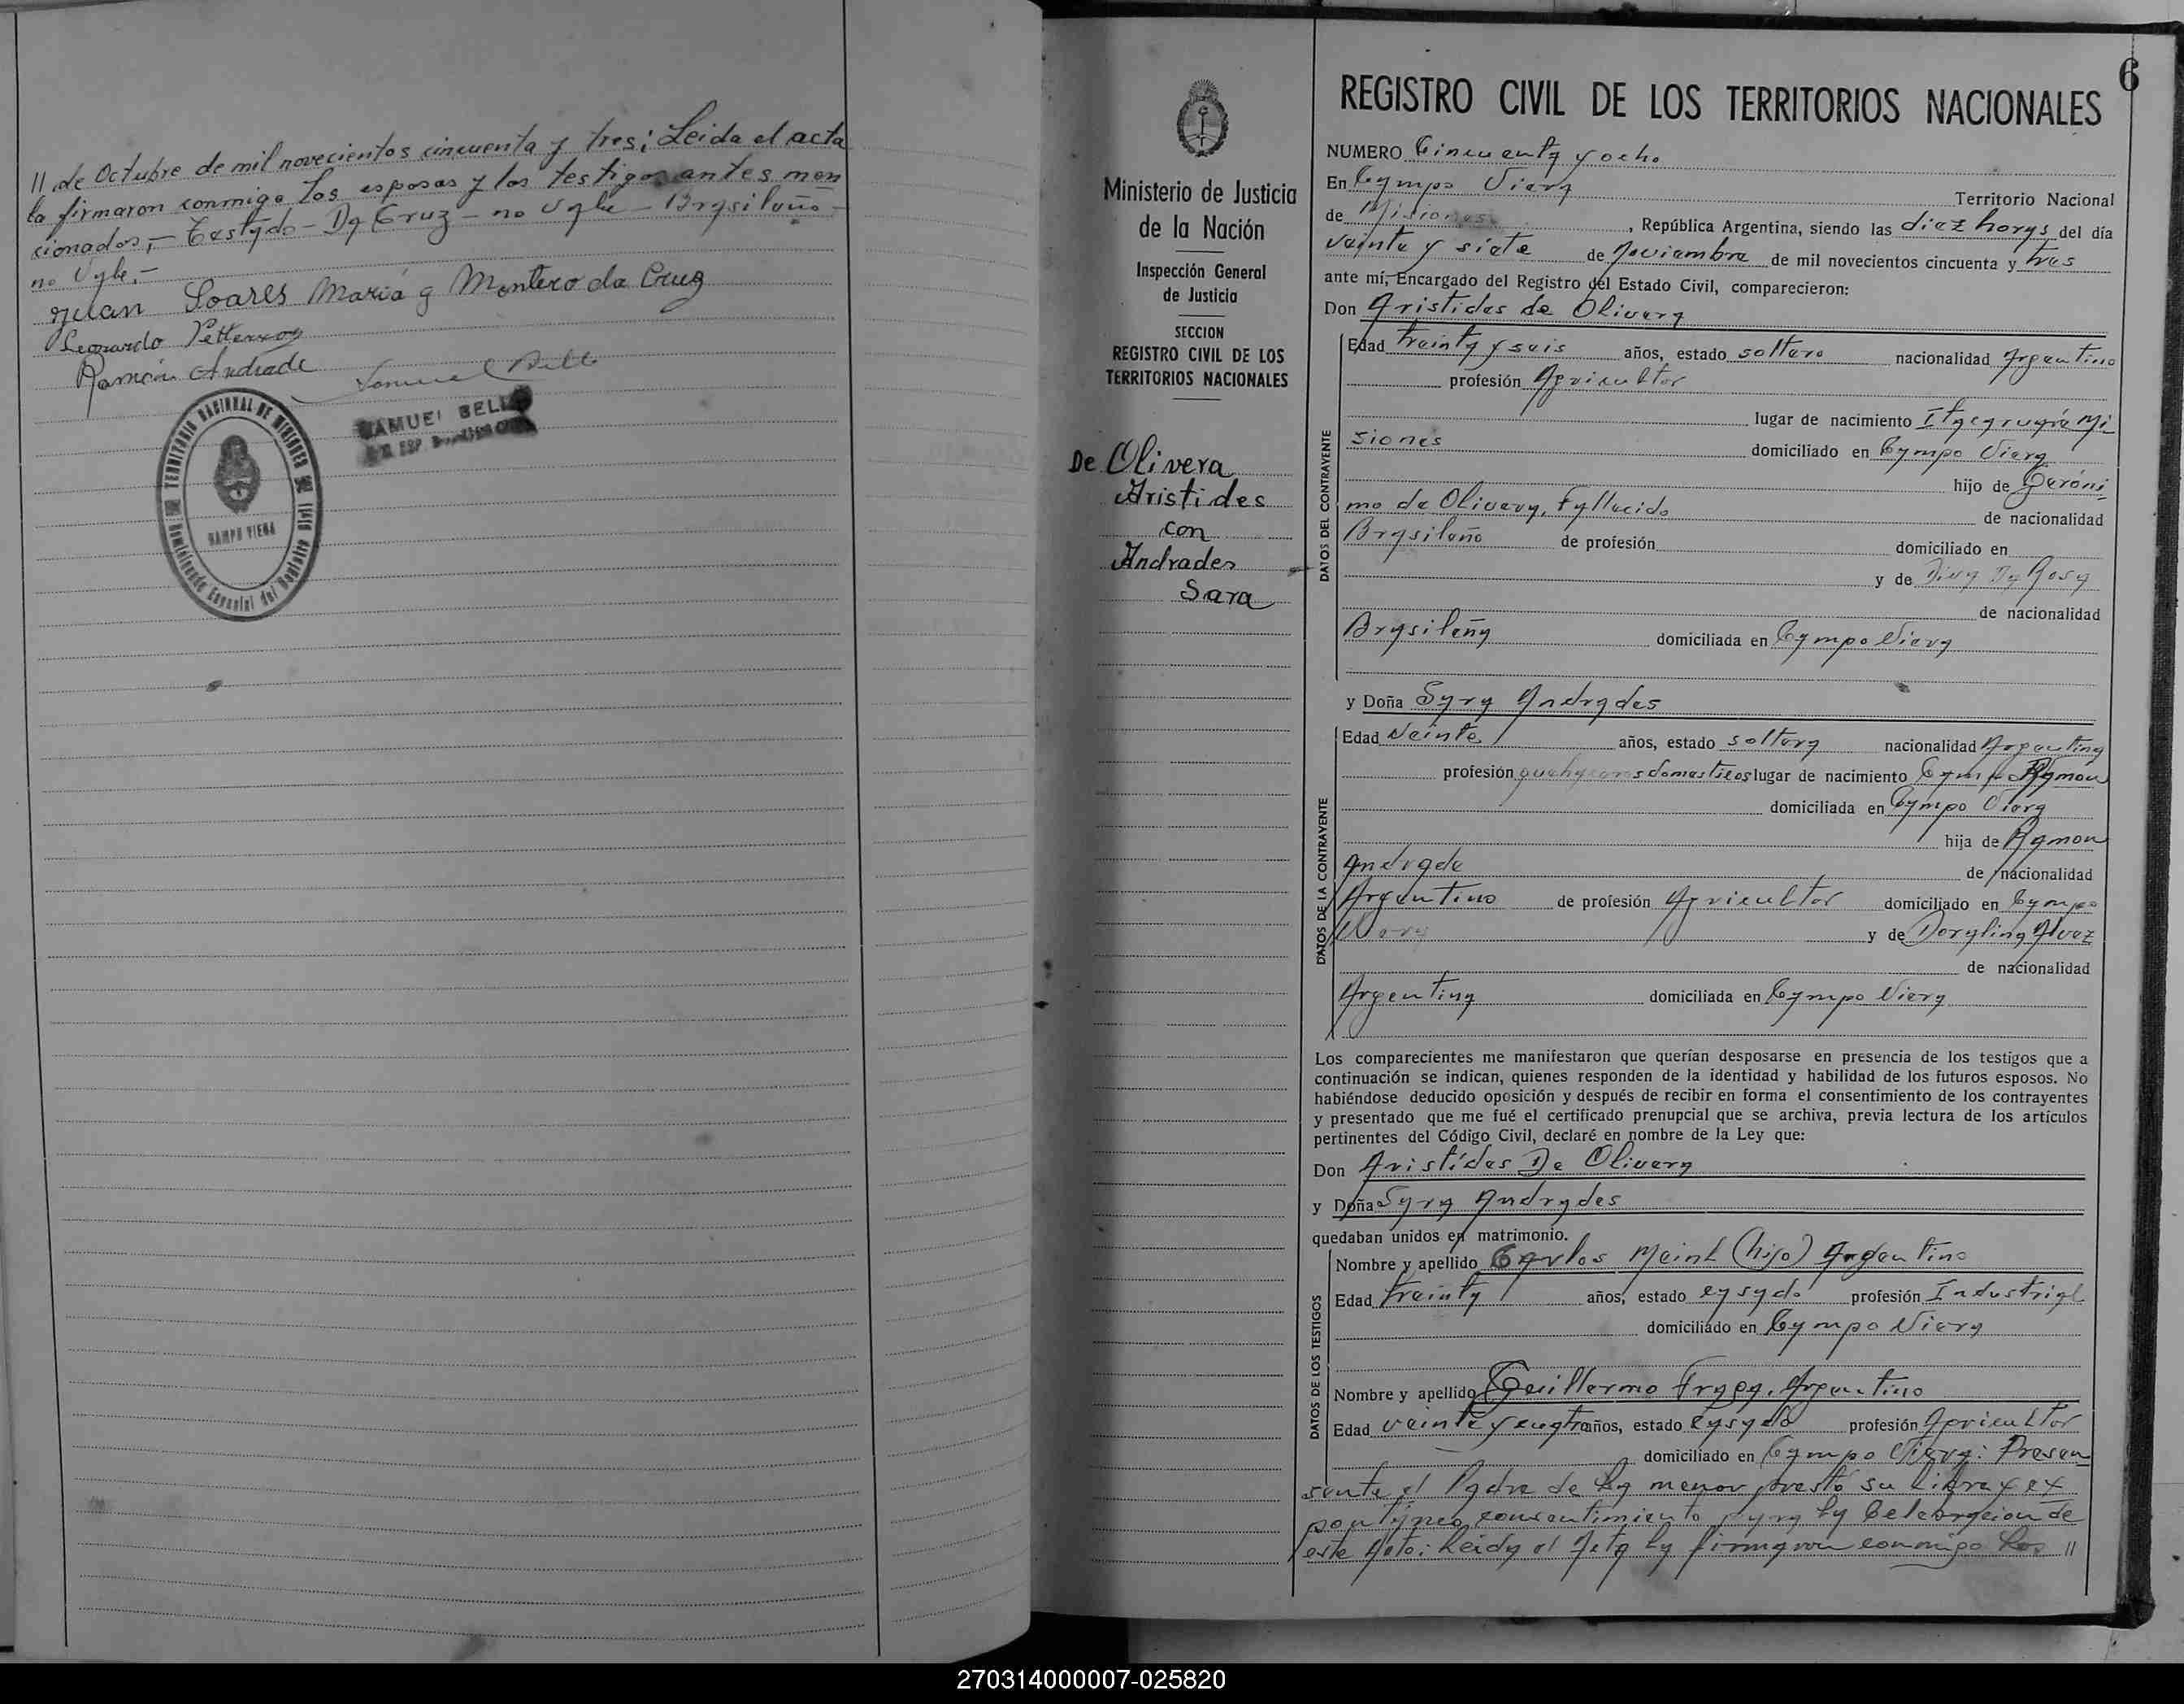 11 de Octubre de mil novecientos cincuenta y tres; Leida el acta
la firmaron conmigo los esposos y los testigos antes men
cionados,- Testado - Da Cruz - no vale - Brasileño -
no vale.-
Juan Soares Maria g Montero da Cruz
Leonardo
Ramón Andrade
Samuel Bell
SAMUEL BELL
TERRITORIO NACIONAL DE MISIONES
CAMPO VIERA
6
REGISTRO CIVIL DE LOS TERRITORIOS NACIONALES
Ministerio de Justicia
de la Nación
Inspección General
de Justicia
SECCION
REGISTRO CIVIL DE LOS
TERRITORIOS NACIONALES
De Olivera
Aristides
con
Andrades
Sara
NUMERO Cincuenta y ocho
En Campo Viera Territorio Nacional
de Misiones, República Argentina, siendo las diez horas del día
veinte y siete de Noviembre de mil novecientos cincuenta y tres
ante mí, Encargado del Registro del Estado Civil, comparecieron:
Don Aristides de Olivera
DATOS DEL CONTRAYENTE
Edad treinta y seis años, estado soltero nacionalidad Argentino
profesión Agricultor
lugar de nacimiento Itacaruaré Mi
siones domiciliado en Campo Viera
hijo de Geróni
mo de Olivera, fallecido de nacionalidad
Brasileño de profesión domiciliado en
y de Diva Da Rosa
de nacionalidad
Brasileña domiciliada en Campo Viera
y Doña Sara Andrades
DATOS DE LA CONTRAYENTE
Edad Veinte años, estado soltera nacionalidad Argentina
profesión quehaceres domesticos lugar de nacimiento Campo Ramon
domiciliada en Campo Viera
hija de Ramon
Andrade de nacionalidad
Argentino de profesión Agricultor domiciliado en Campo
Viera y de Doralina Alvez
de nacionalidad
Argentina domiciliada en Campo Viera
Los comparecientes me manifestaron que querían desposarse en presencia de los testigos que a
continuación se indican, quienes responden de la identidad y habilidad de los futuros esposos. No
habiéndose deducido oposición y después de recibir en forma el consentimiento de los contrayentes
y presentado que me fué el certificado prenupcial que se archiva, previa lectura de los artículos
pertinentes del Código Civil, declaré en nombre de la Ley que:
Don Aristídes De Olivera
y Doña Sara Andrades
quedaban unidos en matrimonio.
DATOS DE LOS TESTIGOS
Nombre y apellido Carlos (hijo) Argentino
Edad treinta años, estado casado profesión Industrial
domiciliado en Campo Viera
Nombre y apellido Guillermo Argentino
Edad veinte y cuatro años, estado casado profesión Agricultor
domiciliado en Campo Viera: Presen
sente el Padre de la menor presto su libre y ex
pontáneo consentimiento para la Celebracion de
este Acto: Leida el Acta la firmaron conmigo los //
270314000007-025820